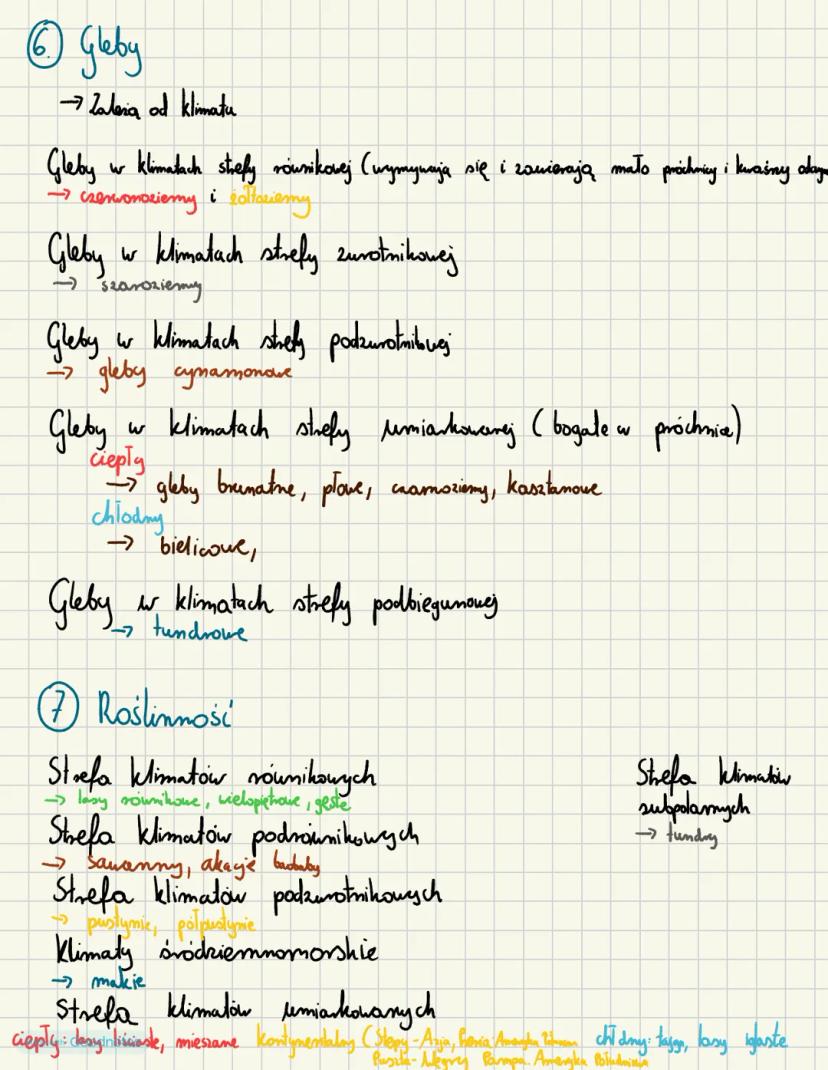 6. Gleby
→ Zależą od klimatu
Gleby w klimatach strefy równikowej (wymywają się i zawierają mało próchnicy i kwaśny odczyn
→ czerwonoziemy i żółtoziemy
Gleby w klimatach strefy zwrotnikowej
→ szaroziemy
Gleby w klimatach strefy podzwrotnikowej
→ gleby cynamonowe
Gleby w klimatach strefy umiarkowanej (bogate w próchnice)
ciepły
→ gleby brunatne, płowe, czarnoziemy, kasztanowe
chłodny
→ bielicowe,
Gleby w klimatach strefy podbiegunowej
→ tundrowe
7 Roślinność
Strefa klimatów równikowych
→ lasy równikowe, wielopiętrowe, gęste
Strefa klimatów podrównikowych
→ sawanny, akacje baobaby
Strefa klimatów podzwrotnikowych
→ pustynie, półpustynie
Klimaty śródziemnomorskie
→ makie
Strefa klimatów umiarkowanych
ciepły: lasy liściaste, mieszane kontynentalny (Stepy - Azja, Preria Ameryka Północna chłdny: tajga, lasy iglaste
Puszta - Węgry Pampa. Ameryka Południowa
Strefa klimatów
subpolarnych
→ tundry